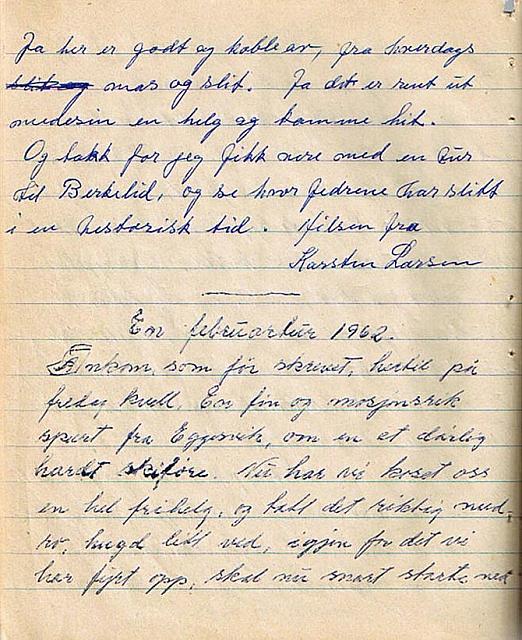 Ja her er godt og koble av, fra hverdags
slit og mas og slit. Ja det er rent ut
medesin en helg og komme hit.
Og takk for jeg fikk være med en tur
til Berkelid, og se hvor fedrene har slitt
i en historisk tid. Hilsen fra
Karsten Larsen
En februartur 1962.
Ankom, som før skrevet, hertil på
fredag kveld, En fin og mosjonsrik
spurt fra Eggevik, om en et dårlig
hardt skiføre. Nu har vi koset oss
en hel frihelg, og tatt det riktig med
ro, hugd litt ved, igjen for det vi
har fyrt opp, skal nu snart starte ned